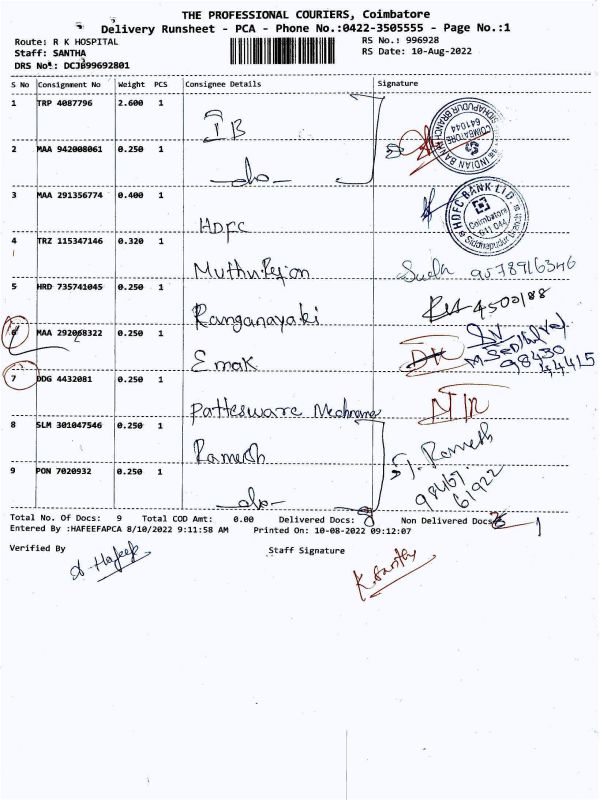 THE PROFESSIONAL COURIERS, Coimbatore
Delivery Runsheet - PCA - Phone No.:0422-3505555 - Page No.:1
Route: R K HOSPITAL
RS No.: 996928
Staff: SANTHA
RS Date: 10-Aug-2022
DRS No.: DCJB99692801
S No Consignment No Weight PCS Consignee Details Signature
1 TRP 4087796 2.600 1
IB
2 MAA 942008061 0.250 1
-do-
INDIAN BANK
SIDHAPUDUR BRANCH
COIMBATORE
641044
3 MAA 291356774 0.400 1
HDFC
HDFC BANK LTD.
Coimbatore
641 044
Siddhapudur Branch
4 TRZ 115347146 0.320 1
Suda 9578916346
5 HRD 735741045 0.250 1
Ranganayaki
4500188
6 MAA 292068322 0.250 1
Emak
98430
44415
7 DDG 4432081 0.250 1
8 SLM 301047546 0.250 1
Ramesh
J. Ramesh
61922
9 PON 7020932 0.250 1
-do-
Total No. Of Docs: 9 Total COD Amt: 0.00 Delivered Docs: 8 Non Delivered Docs: 1
Entered By :HAFEEFAPCA 8/10/2022 9:11:58 AM Printed On: 10-08-2022 09:12:07
Verified By Staff Signature
K. Santha